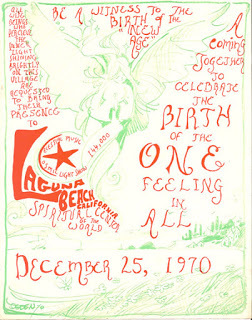 BE A WITNESS TO THE
BIRTH OF THE
"NEW
AGE"
ALL
BEINGS
WHO
PERCEIVE
THE
POWER
LIGHT
SHINING
BRIGHTLY
ON THIS
VILLAGE
ARE
REQUESTED
TO BRING
THEIR
PRESENCE
TO
MUSIC
COSMIC LIGHT SHOW
144,000
LAGUNA
BEACH
CALIFORNIA
SPIRITUAL CENTER
OF THE
WORLD
A
COMING
TOGETHER
TO
CELEBRATE
THE
BIRTH
OF THE
ONE
FEELING
IN
ALL
DECEMBER 25, 1970